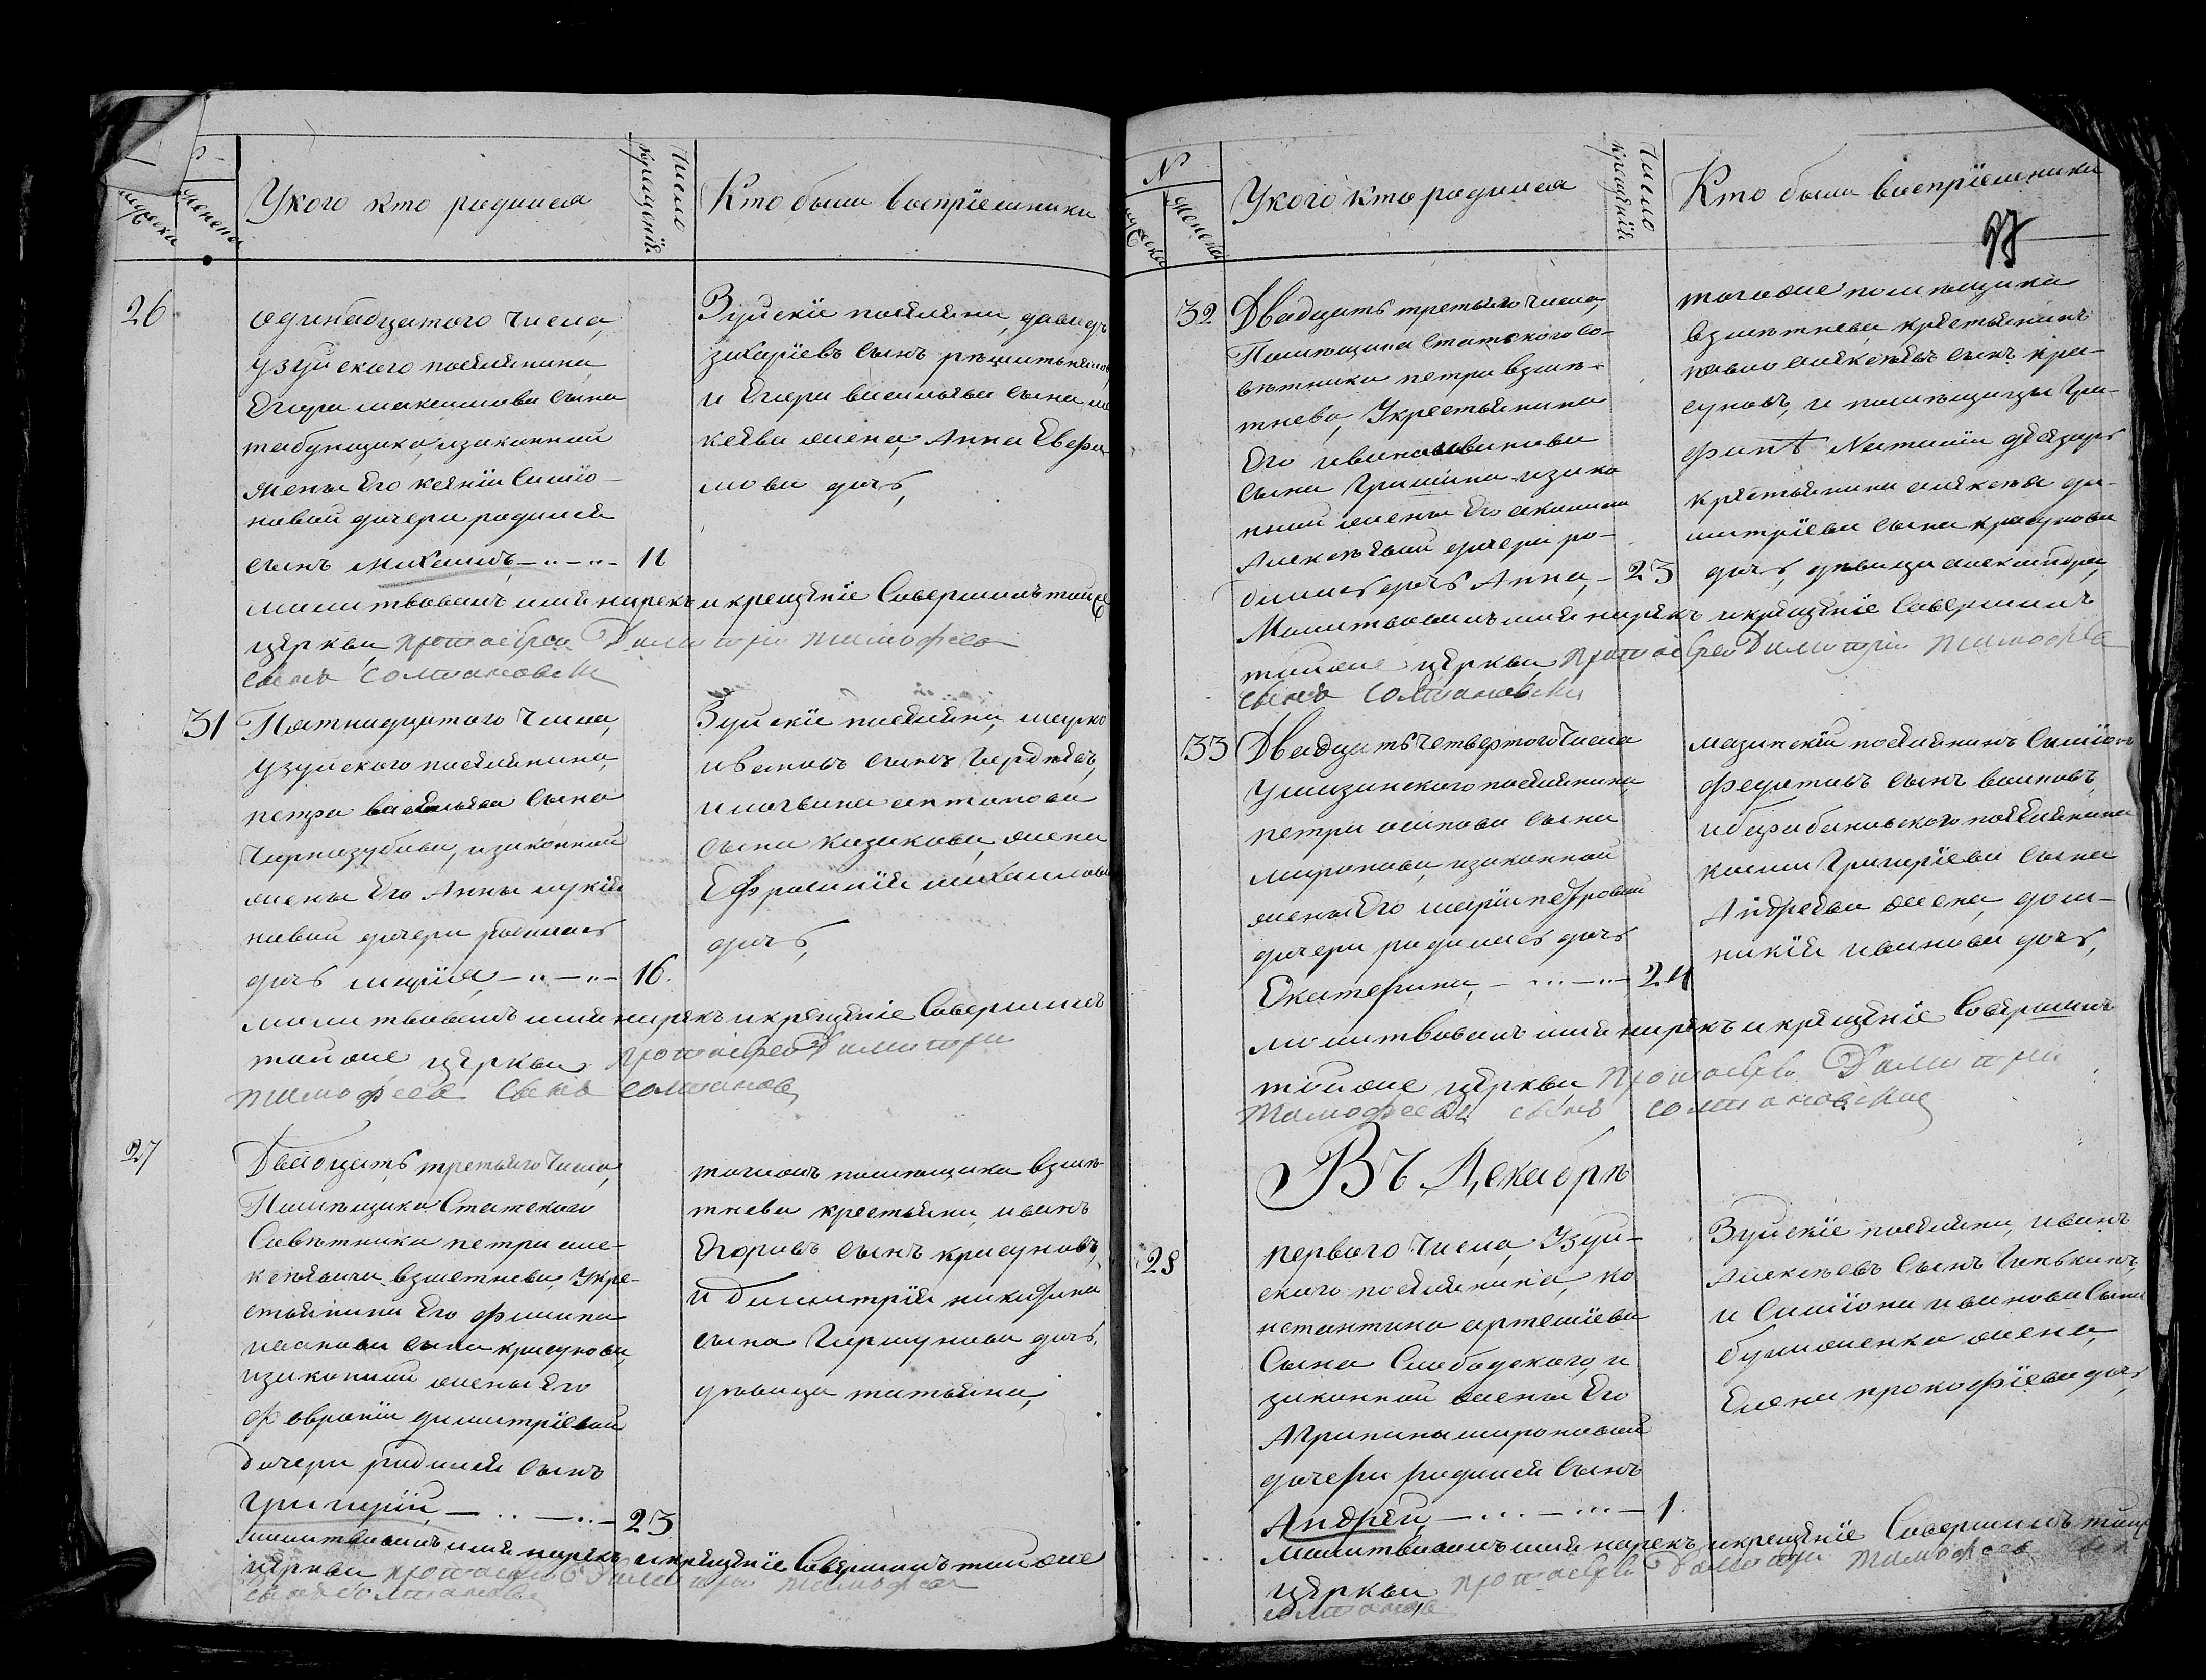 У кого кто родился
Число
крещенiй
Кто были воспрiемники
мужеска
женска
26
одинадцатого числа,
у зуйского поселянина
Егора максимова сына
табунщика, и законной
жены Его ксенiи Симiо-
новой дочери родился
сынъ михаилъ, 11
Зуйскiе поселяни, давидъ
захарiевъ сынъ
и Егора васильева сына
жена, Анна
дочь,
молитвовалъ имя нарекъ и крещенiе Совершилъ тойже
церкви, протоiерей Димитри тимофеев
сынъ солтановски
31
Пятнадцатого числа,
у зуйского поселянина,
петра васильева сына
чернозубова, и законной
жены Его Анны
новой дочери родилась
дочь марiя, 16.
Зуйскiе поселяни, марко
ивановъ сынъ
и логвина антонова
сына казакова, жена
Ефросинiя михаилова
дочь,
молитвовалъ имя нарекъ и крещенiе Совершилъ
тойже церкви протоiерей Димитри
тимофеев сынъ солтанов
27
Двадцать третьяго числа,
Помѣщика Статского
Совѣтника петра але-
ксѣевича взметнева, у кре-
стьянина Его филипа
сына красунова,
и законной жены Его
февронiи димитрiевой
дочери родился сынъ
григорiй, 23
тогожъ помѣщика взме-
тнева крестьяни, иванъ
Егоровъ сынъ красуновъ,
и димитрiя никифора
сына горшунова дочь,
дѣвица татьяна,
молитвовалъ имя нарекъ и крещенiе Совершилъ тойже
церкви протоiерей Димитри тимофеев
сынъ солтановски
№
мужеска
женска
У кого кто родился
Число
крещенiй
Кто были воспрiемники
97
32
Двадцать третьяго числа,
Помѣщика Статского со-
вѣтника петра взме-
тнева, У крестьянина
Его ивана иванова
сына Гришина и зако
нной жены Его акилины
Алексѣевой дочери ро-
дилась дочь Анна, 23
тогоже помѣщика
взметнева, крестьянинъ
павло алексѣевъ сынъ кра-
суновъ, и помѣщицы
Наталiи
крестьянина алексѣя ди-
митрiева сына красунова
дочь, дѣвица александра,
Молитвовалъ имя нарекъ и крещенiе Совершилъ
тойже церкви протоiерей Димитри тимофеев
сынъ солтановски
33
Двадцать четвертого числа
У мазанского поселянина
петра осипова сына
миронова, и законной
жены Его марiи петровой
дочери родилась дочь
Екатерина, 24
мазанскiй поселянинъ Симiонъ
федотовъ сынъ волковъ,
и барабановского поселянина
косми Григорiева сына
Андреева жена, дом-
никiя иванова дочь,
молитвовалъ имя нарекъ и крещенiе Совершилъ
тойже церкви протоiерей Димитри
тимофеев сынъ солтановски
Въ Декабрѣ
28
первого числа, У зуй-
ского поселянина, ко
нстантина артемiева
Сына Слободского, и
законной жены Его
Агрипины мироновой
дочери родился сынъ
Андрей, 1.
Зуйскiе поселяни, иванъ
Алексѣевъ сынъ
и Симiона иванова Сына
жена,
Елена прокофiева дочь
молитвовалъ имя нарекъ и крещенiе Совершилъ тойже
церкви протоiерей Димитри тимофеев сын
солтанов